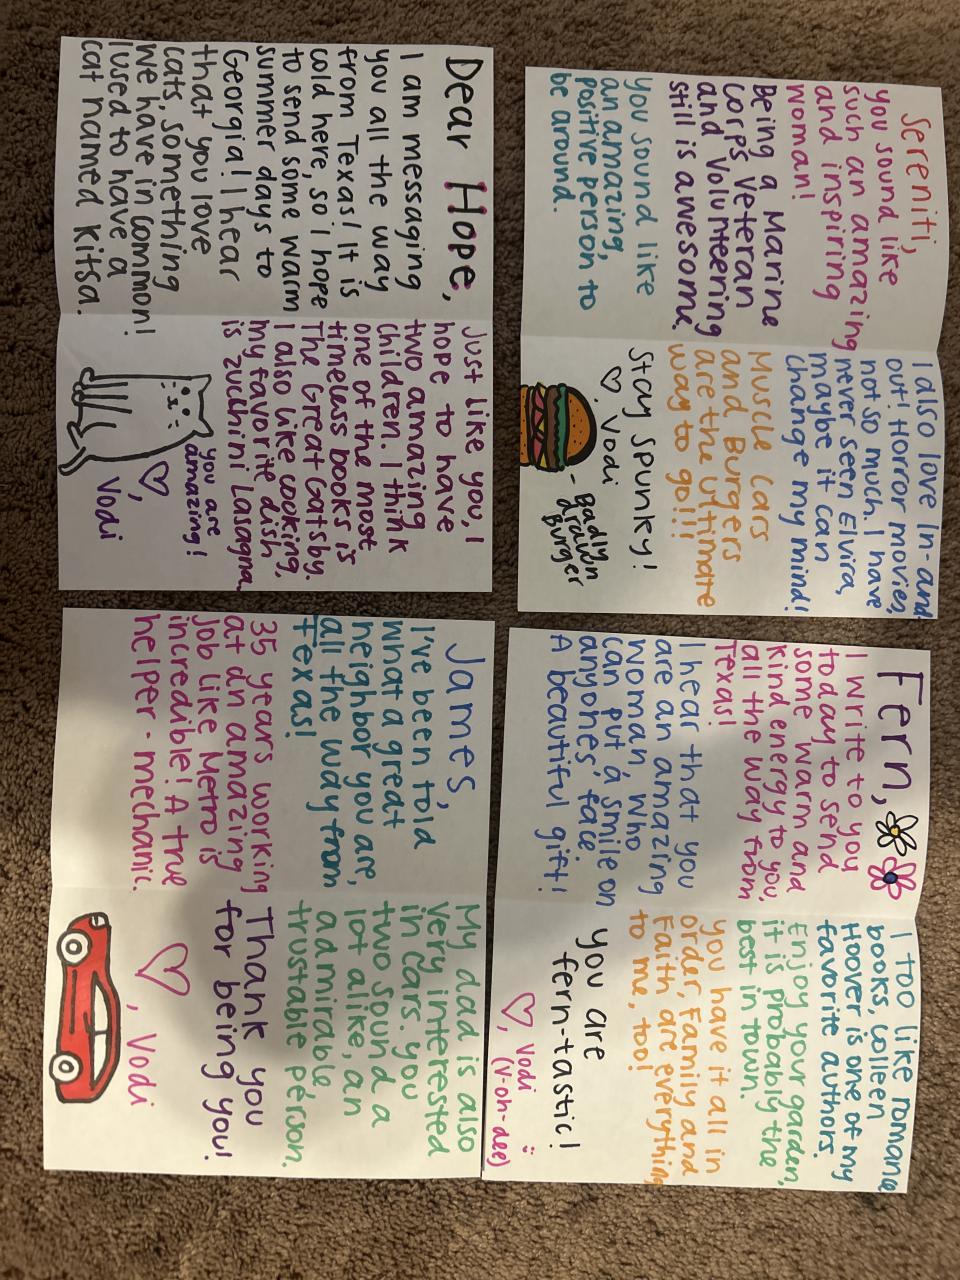 Sereniti,
you sound like
such an amazing
and inspiring
woman!
Being a Marine
Corps Veterran
and Volunteering
still is awesome.
you sound like
an amazing,
positive person to
be around.
I also love In-and
out! Horror movies,
not so much. I have
never seen Elvira,
maybe it can
change my mind!
Muscle Cars
and Burgers
are the ultimate
way to go!!!
Stay Spunky!
♡, Vodi
- Badly
drawn
Burger
Fern,
I write to you
today to send
some warm and
kind energy to you,
all the way from
Texas!
I hear that you
are an amazing
woman, who
can put a smile on
anyones' face.
A beautiful gift!
I too like romance
books, colleen
Hoover is one of my
favorite authors.
Enjoy your garden,
it is probably the
best in town.
you have it all in
order, Family and
Faith are everything
to me, too!
you are
fern-tastic!
♡, Vodi :)
(V-oh-dee)
Dear Hope,
I am messaging
you all the way
from Texas! It is
cold here, so i hope
to send some warm
summer days to
Georgia! I hear
that you love
cats, something
we have in common!
I used to have a
cat named Kitsa.
Just like you, I
hope to have
two amazing
children. I think
one of the most
timeless books is
The Great Gatsby.
I also like cooking,
my favorite dish
is zucchini Lasagna.
you are
amazing!
♡, Vodi
James,
I've been told
what a great
neighbor you are,
all the way from
Texas!
35 years working
at an amazing
job like Metro is
incredible! A true
helper - mechanic.
My dad is also
very interested
in cars. you
two sound a
lot alike, an
admirable,
trustable person.
Thank you
for being you!
♡, Vodi